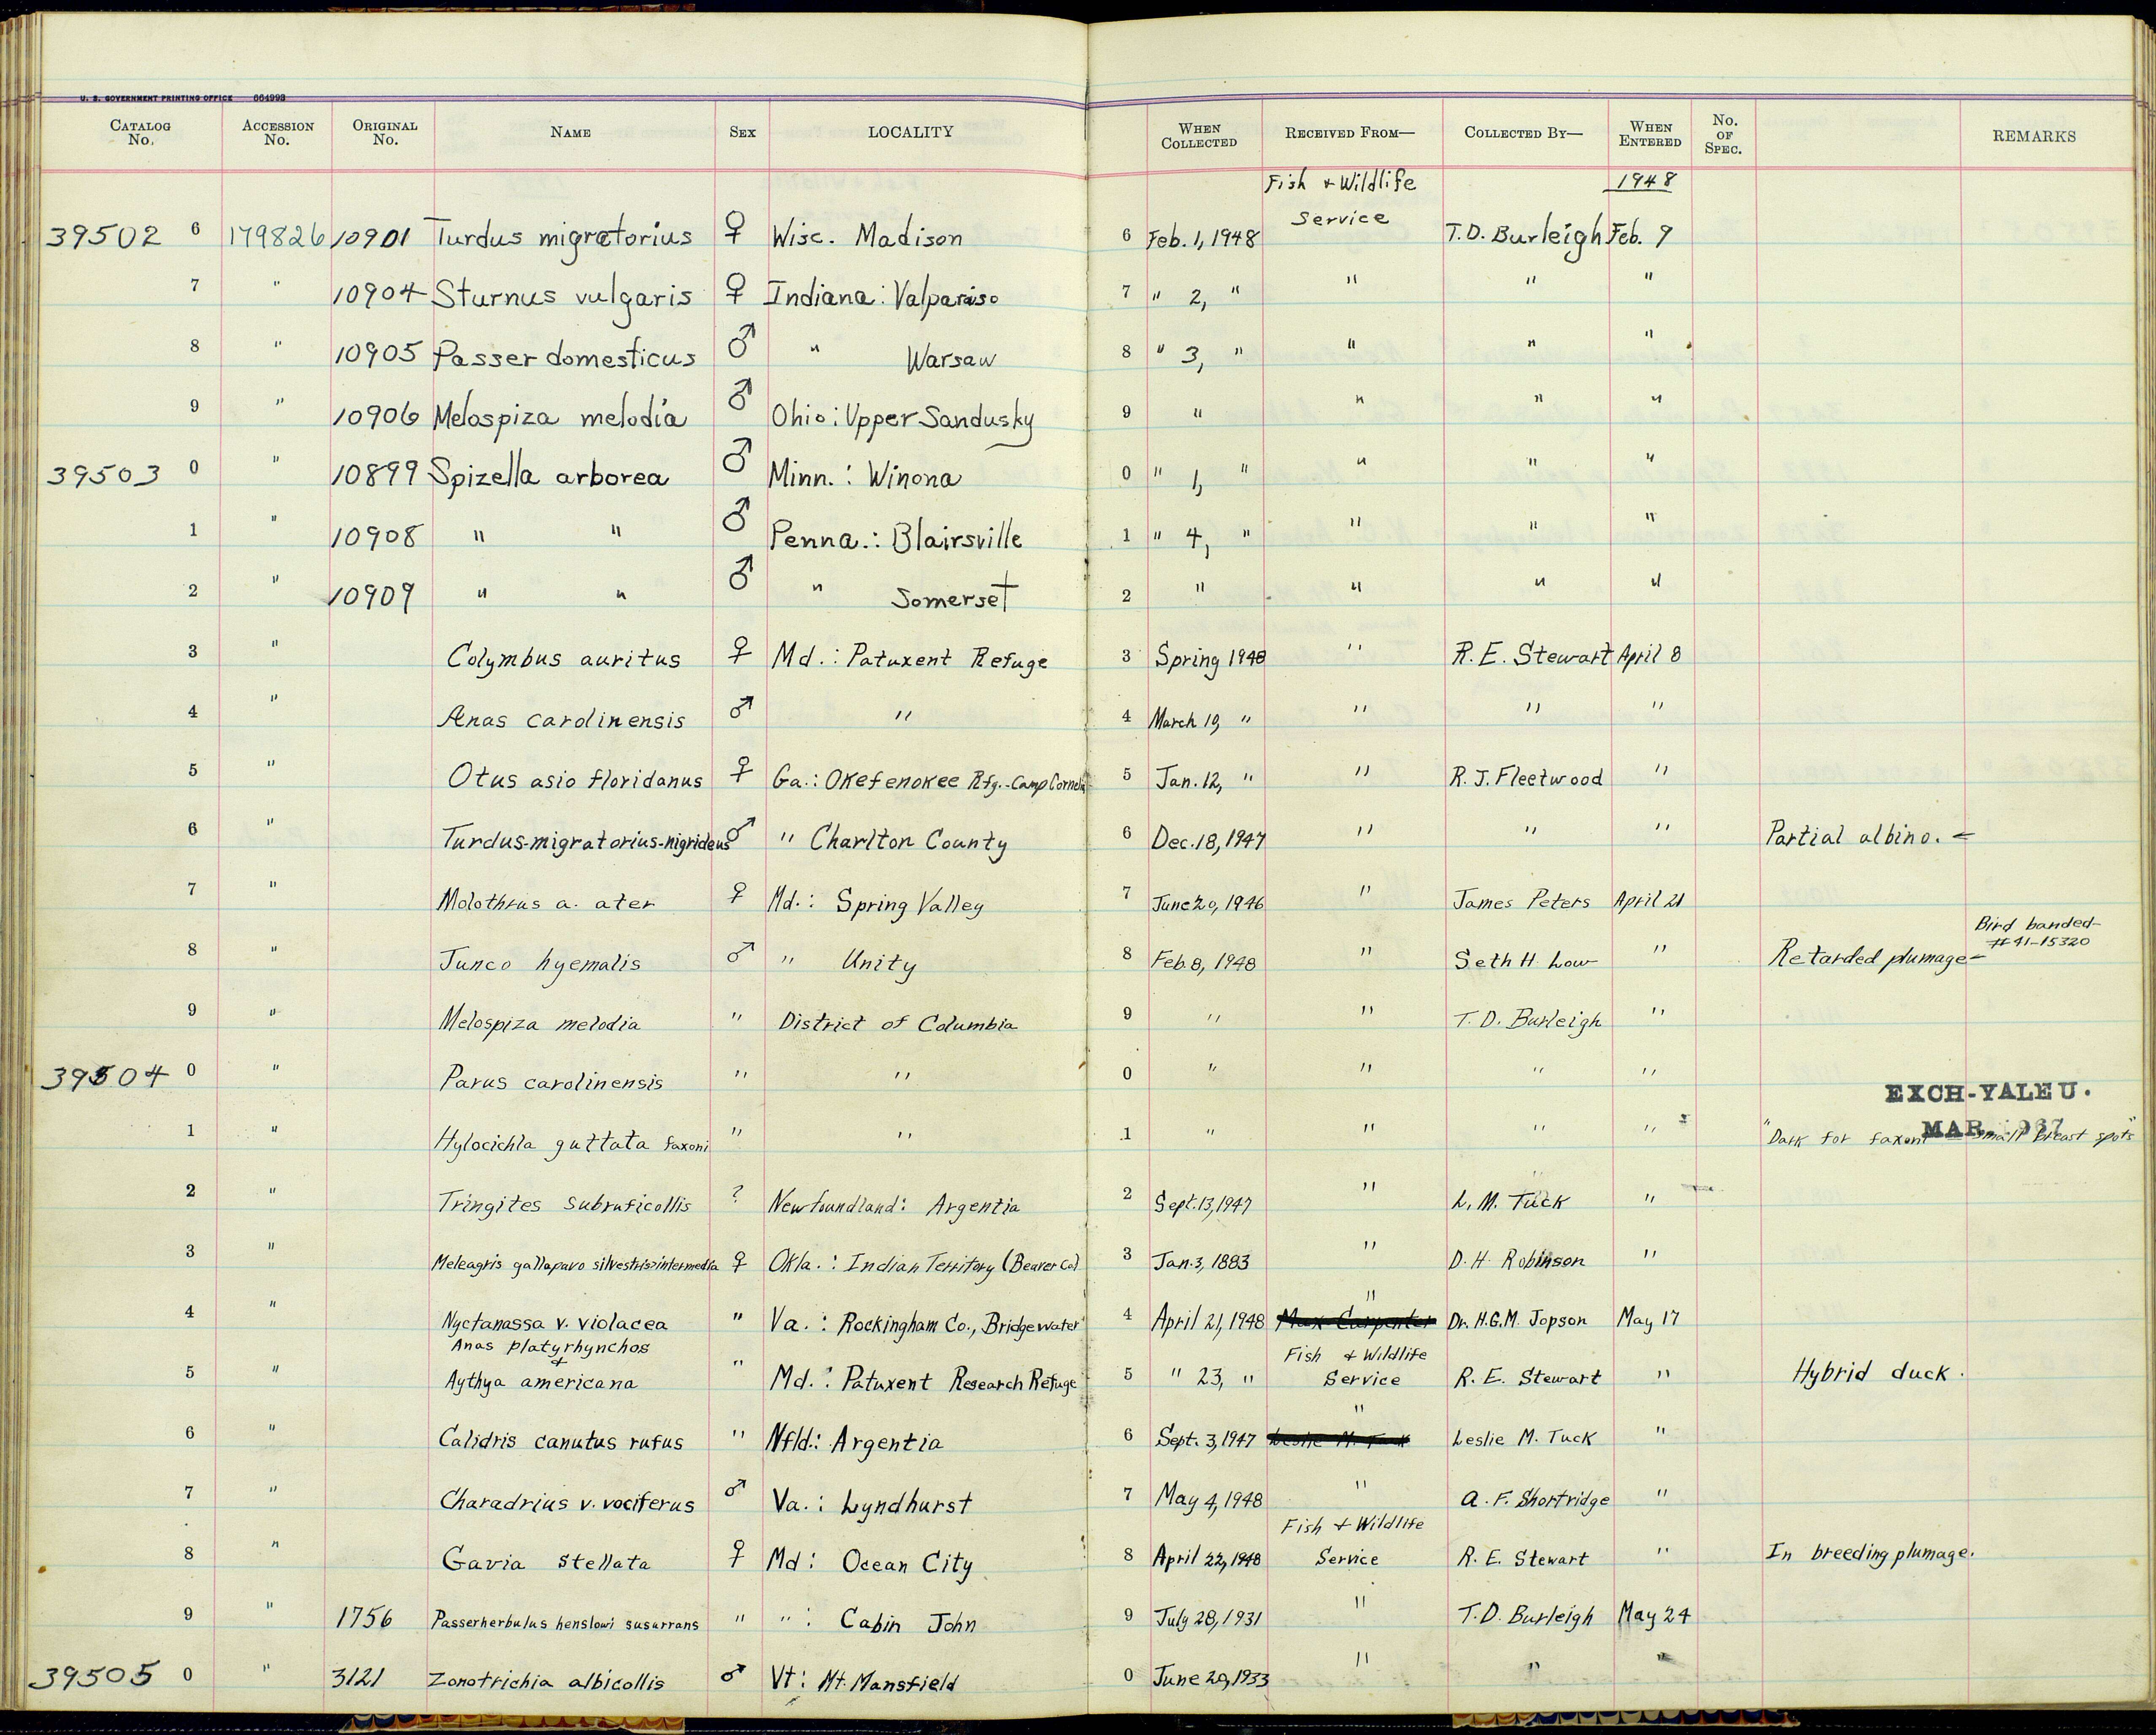 U. S. GOVERNMENT PRINTING OFFICE 664993
CATALOG No. ACCESSION No. ORIGINAL No. NAME SEX LOCALITY WHEN COLLECTED RECEIVED FROM— COLLECTED BY— WHEN ENTERED No. OF SPEC. REMARKS
Fish + Wildlife 1948
Service
39502 6 179826 10901 Turdus migratorius ♀ Wisc. Madison 6 Feb. 1, 1948 T.D. Burleigh Feb. 9
7 " 10904 Sturnus vulgaris ♀ Indiana: Valparaiso 7 " 2, " " " "
8 " 10905 Passer domesticus ♂ " Warsaw 8 " 3, " " " "
9 " 10906 Melospiza melodia ♂ Ohio: Upper Sandusky 9 " " " "
39503 0 " 10899 Spizella arborea ♂ Minn.: Winona 0 " 1, " " " "
1 " 10908 " " ♂ Penna.: Blairsville 1 " 4, " " " "
2 " 10909 " " ♂ " Somerset 2 " " " "
3 " Colymbus auritus ♀ Md.: Patuxent Refuge 3 Spring 1948 " R. E. Stewart April 8
4 " Anas carolinensis ♂ " 4 March 19, " " " "
5 " Otus asio floridanus ♀ Ga.: Okefenokee Rfg.-Camp Cornelia 5 Jan. 12, " " R. J. Fleetwood "
6 " Turdus-migratorius-nigrideus ♂ " Charlton County 6 Dec. 18, 1947 " " " Partial albino. -
7 " Molothrus a. ater ♀ Md.: Spring Valley 7 June 20, 1946 " James Peters April 21
Bird banded-
# 41-15320
8 " Junco hyemalis ♂ " Unity 8 Feb. 8, 1948 " Seth H. Low " Retarded plumage-
9 " Melospiza melodia " District of Columbia 9 " " T. D. Burleigh "
39504 0 " Parus carolinensis " " 0 " " " "
EXCH-YALE U.
1 " Hylocichla guttata faxoni " " 1 " " " " "Dark for faxoni small breast spots"
MAR 1967
2 " Tringites subruficollis ? Newfoundland: Argentia 2 Sept. 13, 1947 " L. M. Tuck "
3 " Meleagris gallapavo silvestris>intermedia ♀ Okla.: Indian Territory (Beaver Co.) 3 Jan. 3, 1883 " D. H. Robinson "
"
4 " Nyctanassa v. violacea " Va.: Rockingham Co., Bridgewater 4 April 21, 1948 Max Carpenter Dr. H.G.M. Jopson May 17
Anas platyrhynchos Fish + Wildlife
+
5 " Aythya americana " Md.: Patuxent Research Refuge 5 " 23, " Service R. E. Stewart " Hybrid duck.
"
6 " Calidris canutus rufus " Nfld.: Argentia 6 Sept. 3, 1947 Leslie M. Tuck Leslie M. Tuck "
7 " Charadrius v. vociferus ♂ Va.: Lyndhurst 7 May 4, 1948 " A. F. Shortridge "
Fish + Wildlife
8 " Gavia stellata ♀ Md: Ocean City 8 April 22, 1948 Service R. E. Stewart " In breeding plumage.
9 " 1756 Passerherbulus henslowi susurrans " " : Cabin John 9 July 28, 1931 " T. D. Burleigh May 24
39505 0 " 3121 Zonotrichia albicollis ♂ Vt: Mt. Mansfield 0 June 29, 1933 " " "